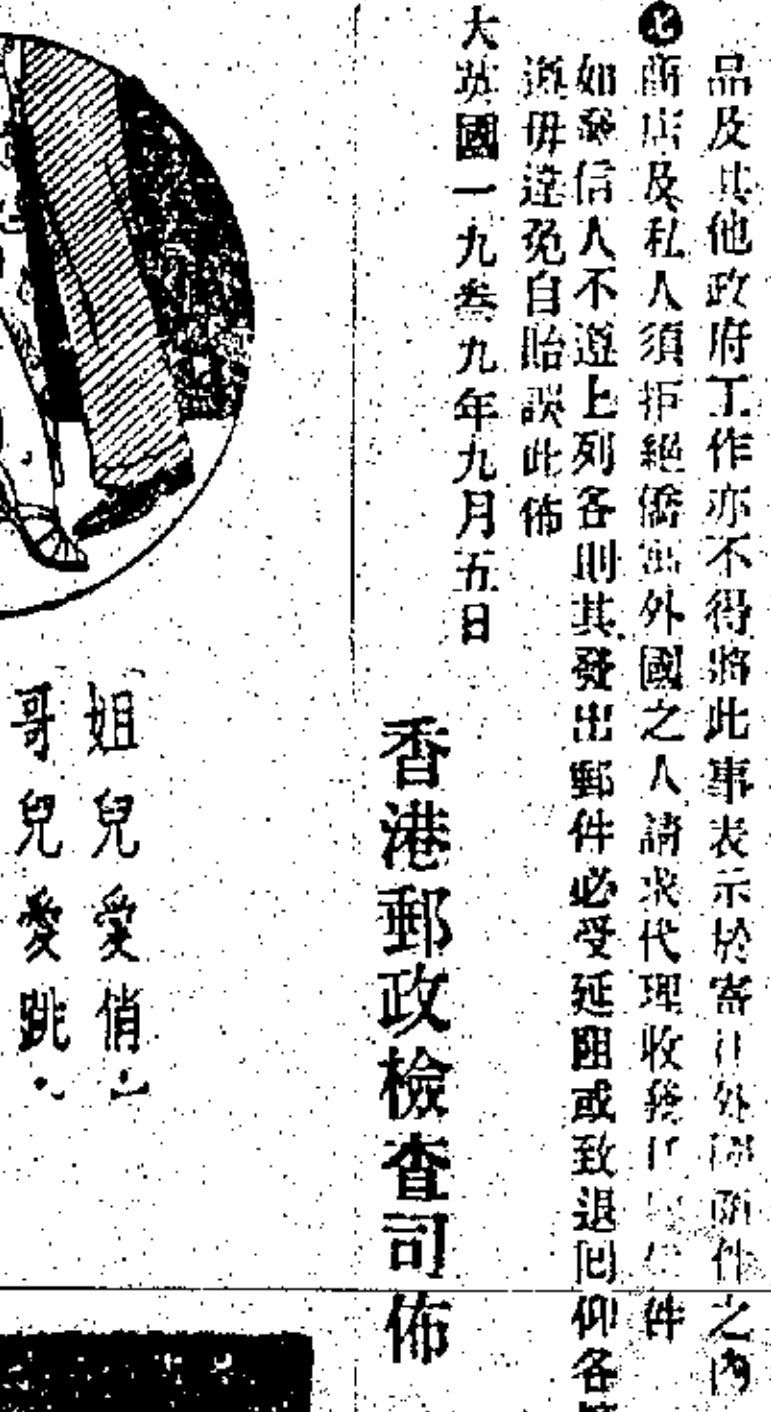 品及其他政府工作亦不得將此事表示於寄往外國函件之內
七商店及私人須拒絕僑居外國之人請求代理收發件
如發信人不遵上列各則其發出郵件必受延阻或致退回仰各
遵毋違免自貽誤此佈
大英國一九叁九年九月五日
香港郵政檢查司佈
姐兒愛俏
哥兒愛跳